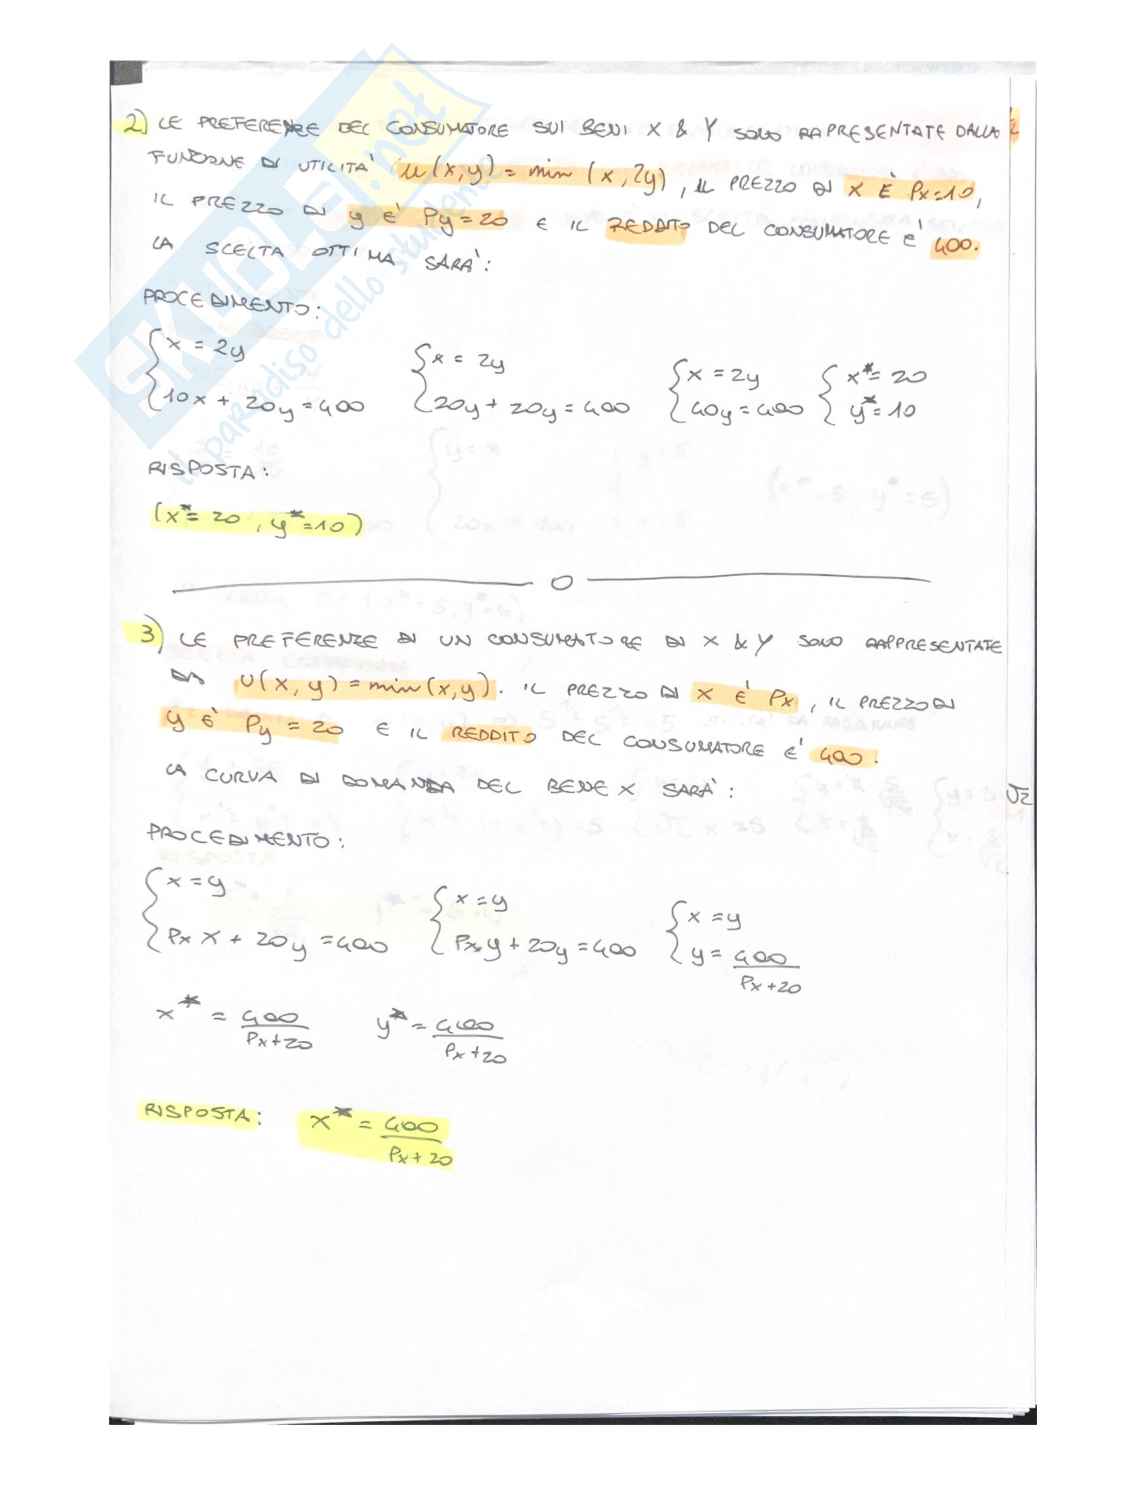 2) LE PREFERENZE DEL CONSUMATORE SUI BENI X & Y SONO RAPPRESENTATE DALLA
FUNZIONE DI UTILITA' u(x,y) = min (x, 2y), IL PREZZO DI X È Px=10,
IL PREZZO DI y È Py = 20 E IL REDDITO DEL CONSUMATORE E' 400.
LA SCELTA OTTIMA SARA':
PROCEDIMENTO:
{ x = 2y { x = 2y { x = 2y { x*= 20
10x + 20y = 400 20y + 20y = 400 40y = 400 y*= 10
RISPOSTA:
(x*= 20 , y*=10)
3) LE PREFERENZE DI UN CONSUMATORE DI X & Y SONO RAPPRESENTATE
DA U(x, y) = min(x,y). IL PREZZO DI X È Px, IL PREZZO DI
y È Py = 20 E IL REDDITO DEL CONSUMATORE E' 400.
LA CURVA DI DOMANDA DEL BENE X SARA':
PROCEDIMENTO:
{ x = y { x = y { x = y
Px X + 20y = 400 Px y + 20y = 400 y = 400 / Px + 20
x* = 400 / Px + 20 y* = 400 / Px + 20
RISPOSTA: x* = 400 / Px + 20
SKUOLA.net
il paradiso dello studente